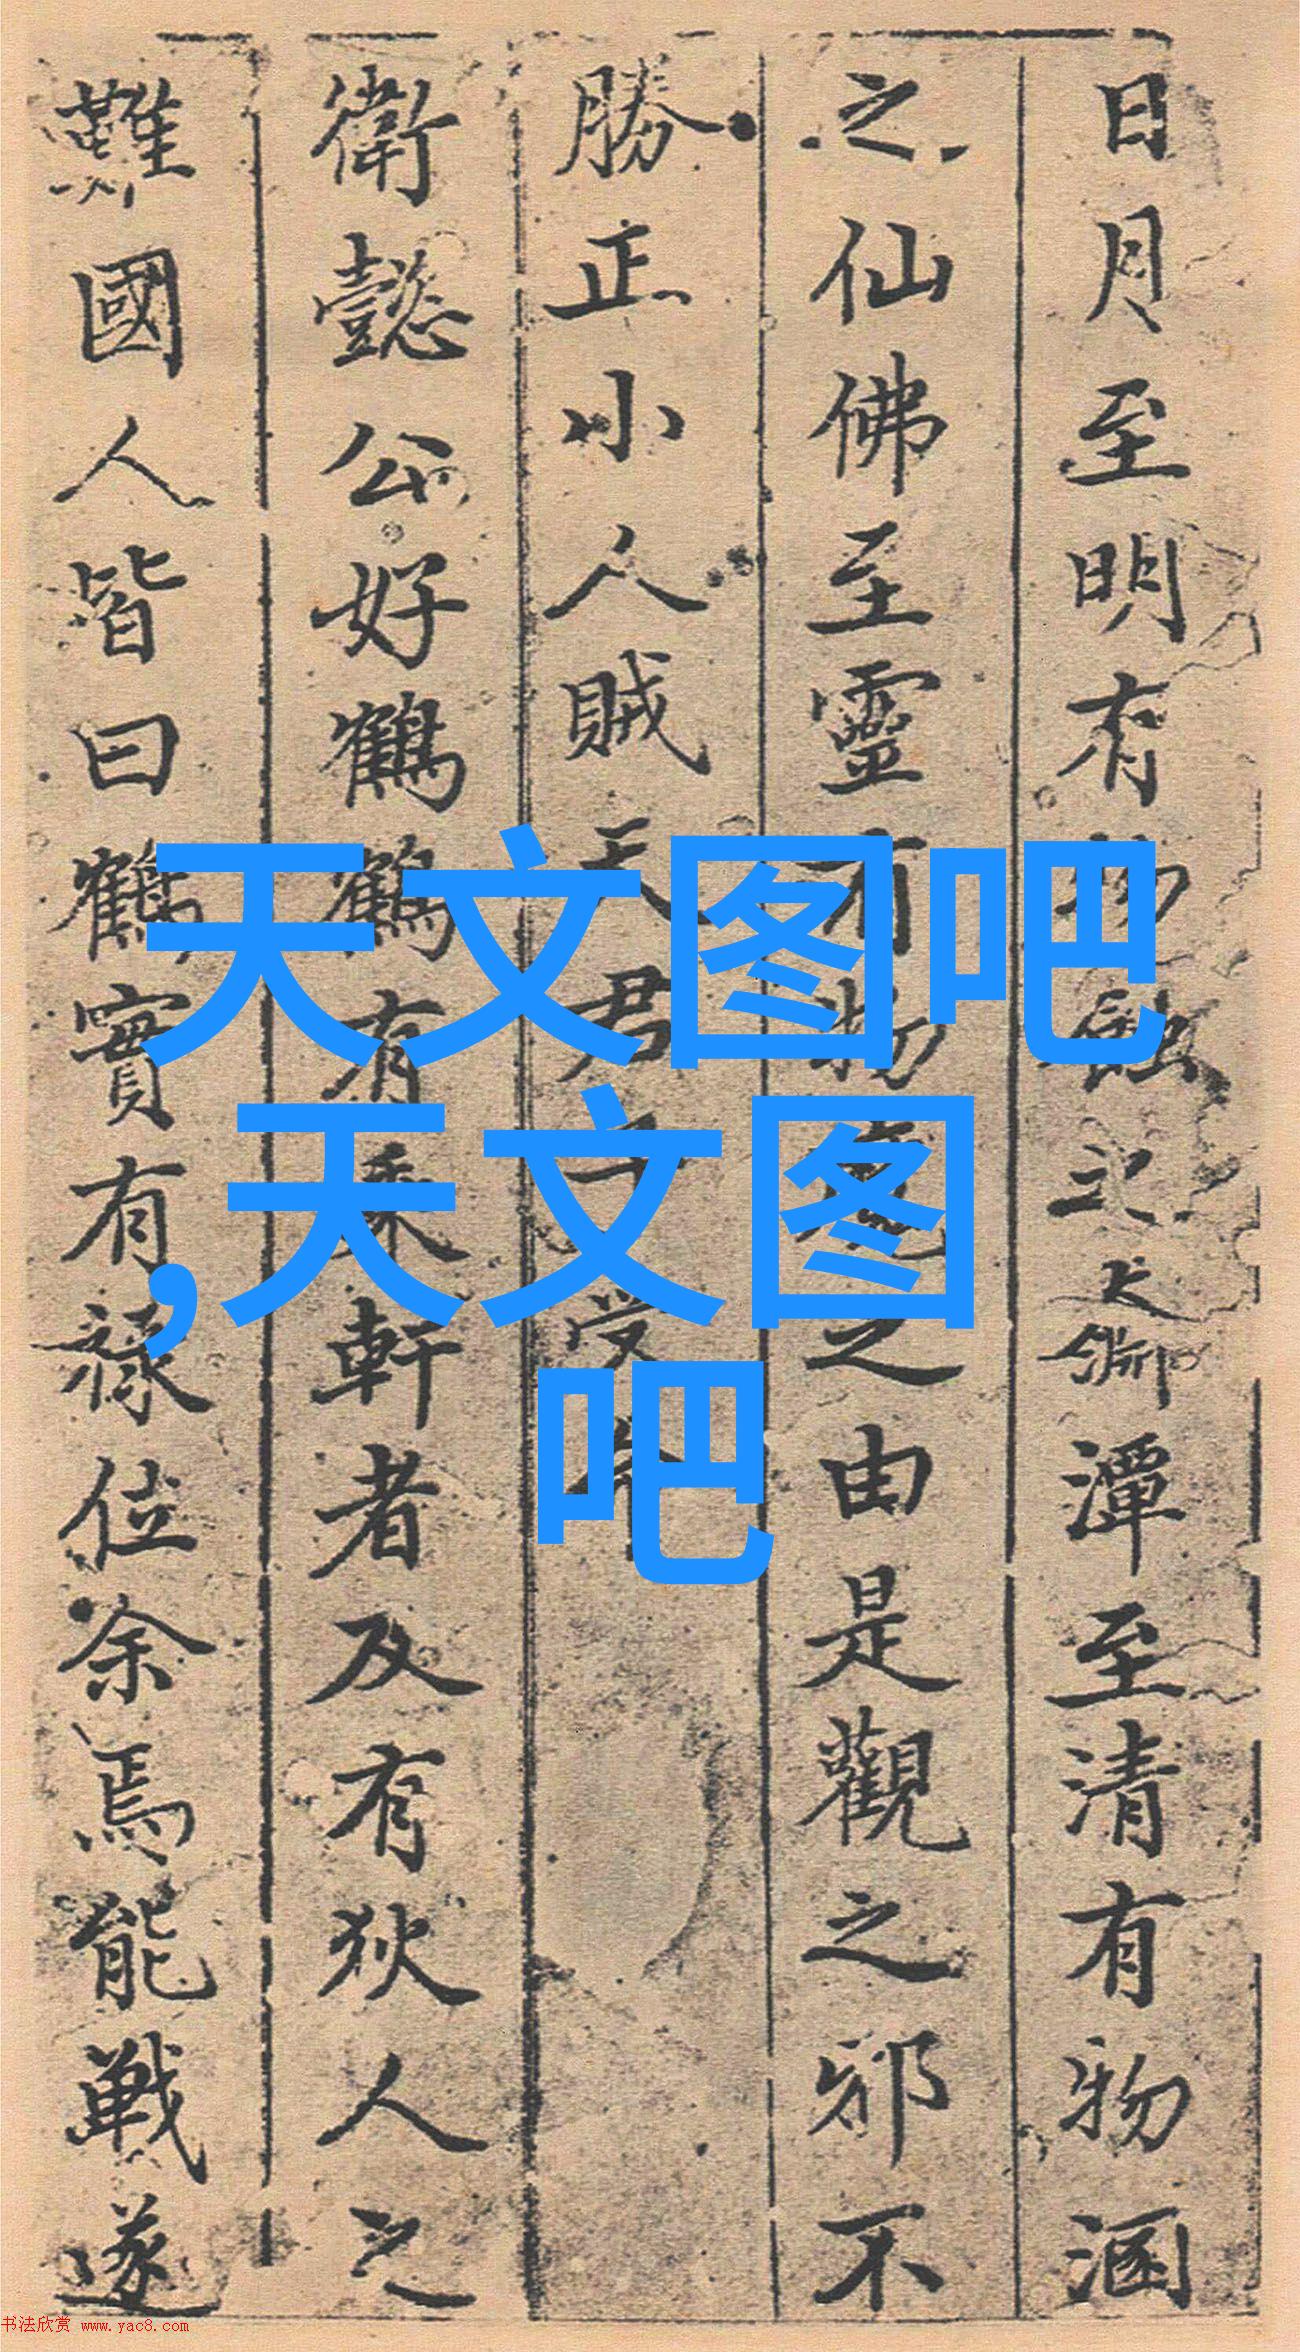 日月至明有物蝕之大淵潭至清有物涵
之仙佛至靈有物之由是觀之邪不
勝正小人賊天君受
衛懿公好鶴鶴有乘軒者及有狄人之
難國人皆曰鶴實有祿位余焉能戰遂
天文图吧
,天文图
吧
书法欣赏 www.yac8.com